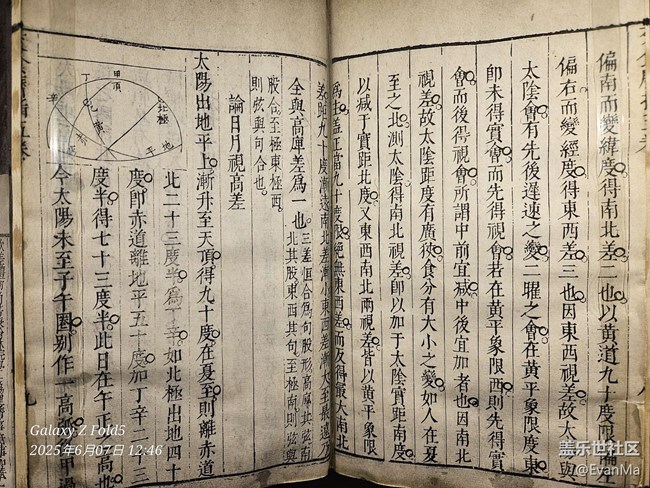 偏南而變緯度得南北差二也以黃道九十度限偏左
偏右而變經度得東西差三也因東西視差故太陰與
太陰會有先後遲速之變二曜之會在黃平象限度東
即未得實會而先得視會若在黃平象限西則先得實
會而後得視會所謂中前宜減中後宜加者也因南北
視差故太陰距度有廣狹食分有大小之變如人在夏
至之北測太陰得南北視差即以加于太陰實距南度
以減于實距北度又東西南北兩視差皆以黃平象限
為主蓋正當九十度限絕無東西差而反得最大南北
差距九十度漸遠南北差漸小東西差漸大至最遠乃
全與高庳差為一也
三差恒合為句股形高庳其弦南
北其股東西其句至極南則弦與
股合至極東極西
則弦與句合也
論日月視高差
太陽出地平上漸升至天頂得九十度在夏至則離赤道
北二十三度半為丁辛如北極出地四十
度即赤道離地平五十度加丁辛二十三
度半得七十三度半此日在午正之高也
今太陽未至子午圈別作一高弧
甲頂
丁
北極
地平
Galaxy Z Fold5
2025年6月07日 12:46
盖乐世社区
@EvanMa